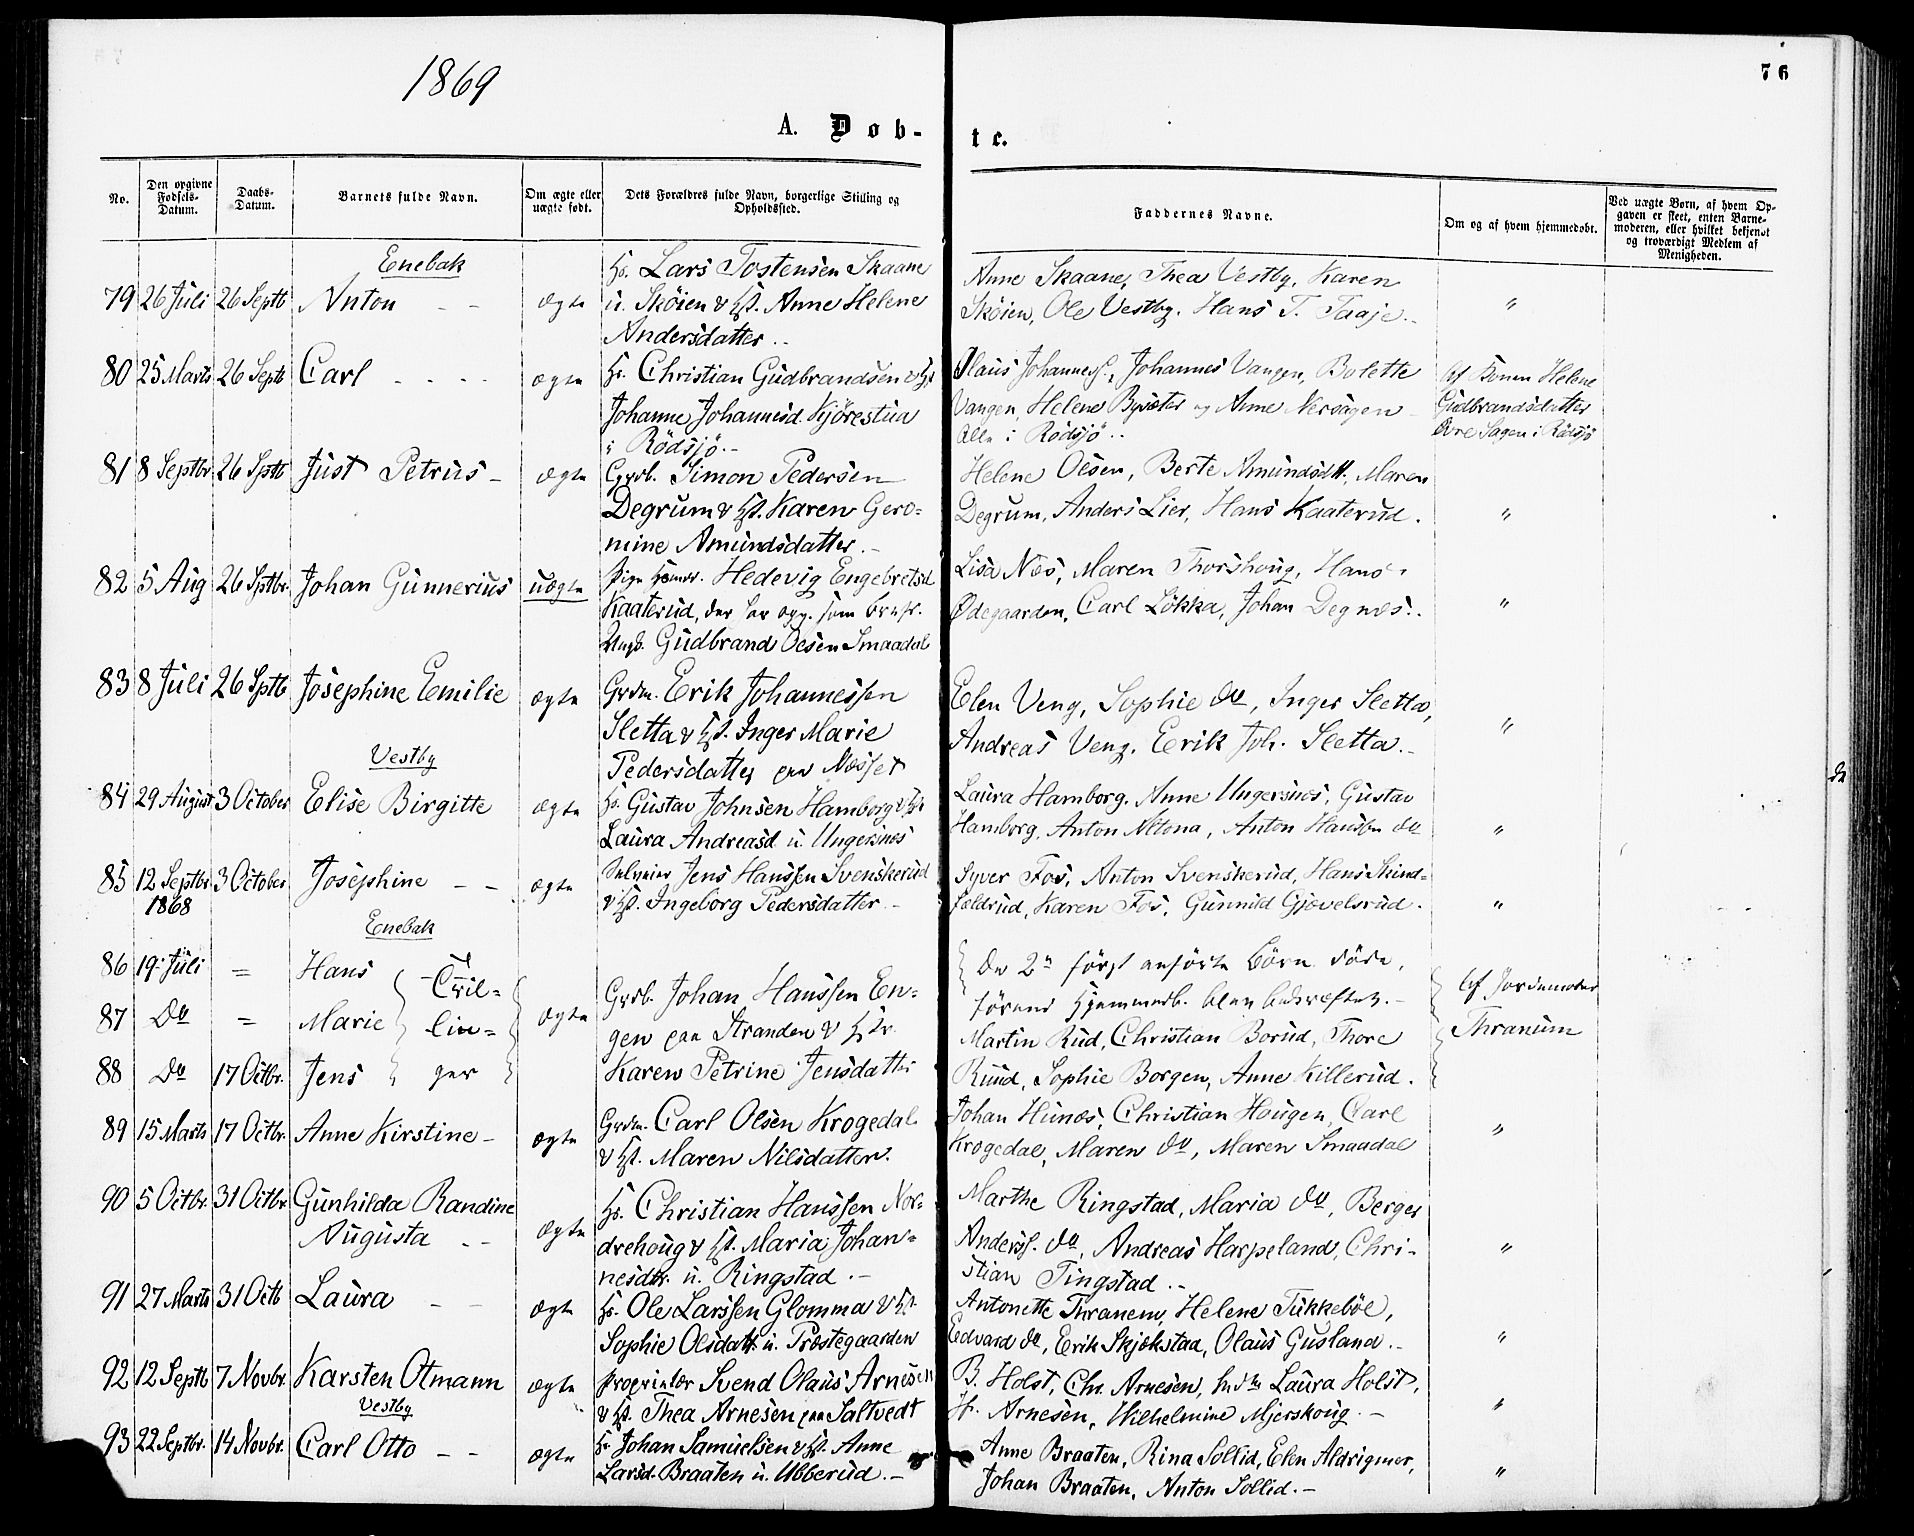 1869
76
A. Døb-
te.
No.
Den opgivne Fødsels-Datum.
Daabs-Datum.
Barnets fulde Navn.
Om ægte eller uægte født.
Dets Forældres fulde Navn, borgerlige Stilling og Opholdssted.
Faddernes Navne.
Om og af hvem hjemmedøbt.
Ved uægte Børn, af hvem Opgaven er skeet, enten Barnemoderen, eller hvilket bekjendt og troværdigt Medlem af Menigheden.
Enebak
Hs. Lars Tostensen Skaane
Anne Skaane, Thea Vestby, Karen
79 26 Juli 26 Septb Anton - - ægte
u. Skøien & Hst. Anne Helene
Skøien, Ole Vestby, Hans T. Taaje.
"
Andersdatter ..
80 25 Marts 26 Septb Carl - - - - ægte
Hs. Christian Gudbrandsen &
Olaus Johannes., Johannes Vangen, Bolette
Af Konen Helene
Johanne Johannesd. Kjørestua
Vangen, Helene Byvæter og Anne Nersagen
Gudbrandsdatter
i Rødsjø.-
Alle i Rødsjø ..
Øvre Sagen i Rødsjø
81 8 Septbr. 26 Sptb Just Petrus - ægte
Grdb. Simon Pedersen
Helene Olsen, Berte Amundsdtt., Maren
Degrum & Hst. Karen Gero=
Degrum, Anders Lier, Hans Kaaterud.
"
mine Amundsdatter.-
82 5 Aug 26 Sptbr. Johan Gunnerius uægte
Pige Hedevig Engebretsd.
Lisa Næs, Maren Thorshoug, Hans
Kaaterud, der har opg. som Brnfr.
Ødegaarden, Carl Løkka, Johan Degnæs..
"
Ungk. Gudbrand Olsen Smaadal
83 8 Juli 26 Sptb Josephine Emilie ægte
Grdm. Erik Johannessen
Elen Veng, Sophie do, Inger Sletta,
Sletta & Hst. Inger Marie
Andreas Veng, Erik Joh. Sletta.-
"
Vestby
Pedersdatter paa Næsset
84 29 August 3 October Elise Birgitte ægte
Hs. Gustav Johnsen Hamborg &
Laura Hamborg, Anne Ungersnes, Gustav
Laura Andreasd. u. Ungersnes
Hamborg, Anton Netona, Anton Hansen do
"
85 12 Septbr. 3 October Josephine - - ægte
Selveier Jens Hanssen Svenskerud
Syver Fos, Anton Svenskerud, Hans Skind=
1868
& Hst. Ingeborg Pedersdatter -
fældrud, Karen Fos, Gunnild Gjøvelsrud.
"
Enebak
86 19 Juli = Hans
Tril=
De 2de først anførte Børn døde,
Af Jordemoder
Grdb. Johan Hanssen En=
førend Hjemmedb. blev bekræftet.-
87 Do = Marie lin= ægte
gen paa Stranden & Hst.
Martin Rud, Christian Borud, Thore
Thranum
88 Do 17 Octbr. Jens ger
Karen Petrine Jensdatter
Ruud, Sophie Borgen, Anne Killerud.
89 15 Marts 17 Octbr. Anne Kirstine - ægte
Grdm. Carl Olsen Krogedal
Johan Hunæs, Christian Hougen, Carl
& Hst. Maren Nilsdatter.
Krogedal, Maren do, Maren Smaadal
"
90 5 Octbr. 31 Octbr. Gunhilda Randine
Hs. Christian Hanssen Nor=
Marthe Ringstad, Maria do, Berger
Augusta - - ægte
drehoug & Hst. Maria Johan=
Anderss. do, Andreas Harpeland, Chri=
"
nesdtr. u. Ringstad.-
stian Tingstad.-
91 27 Marts 31 Octb Laura - - ægte
Hs. Ole Larssen Glomma & Hst.
Antonette Thranem, Helene Tukkebøl,
Sophie Olsdatt. u. Præstegaarden
Edvard do, Erik Skjækstad, Olaus Gusland.-
"
92 12 Septb 7 Novbr. Karsten Otmann ægte
Proprietær Svend Olaus Arnesen
B. Holst, Chr. Arnesen, Laura Holst,
Vestby
& Hst. Thea Arnesen paa Saltvedt
H. Arnesen, Wilhelmine Mjerskoug.-
"
93 22 Septbr. 14 Novbr. Carl Otto - - ægte
Hs. Johan Samuelsen & Hst. Anne
Anne Braaten, Rina Sollid, Elen Aldrigmer,
Larsd. Braaten u. Ubberud.-
Johan Braaten, Anton Sollid.-
"